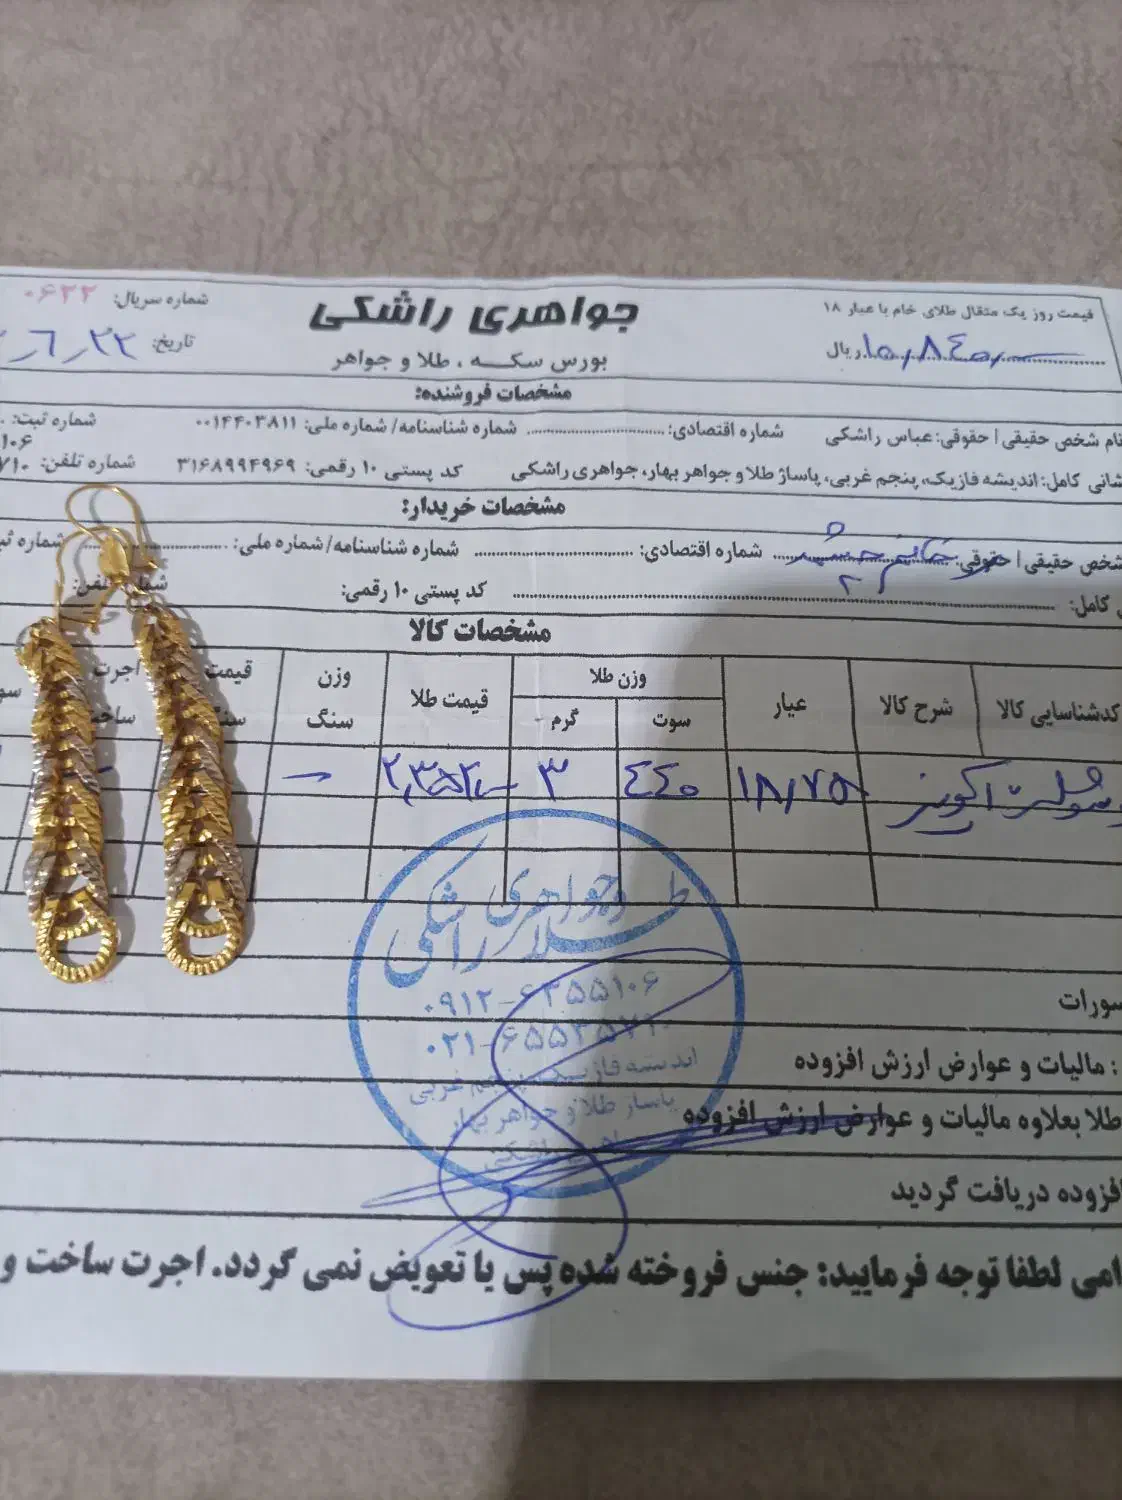 قیمت روز یک مثقال طلای خام با عیار ۱۸
۱۰,۸۴۰,۰۰۰ ریال
جواهری راشکی
بورس سکه ، طلا و جواهر
شماره سریال: ۰۶۲۲
تاریخ: ۶٫۲۲
مشخصات فروشنده:
نام شخص حقیقی / حقوقی: عباس راشکی شماره اقتصادی: شماره شناسنامه/ شماره ملی: ۰۰۱۴۴۰۳۸۱۱ شماره ثبت:
شانی کامل: اندیشه فازیک، پنجم غربی، پاساژ طلا و جواهر بهار، جواهری راشکی کد پستی ۱۰ رقمی: ۳۱۶۸۹۹۴۹۶۹ شماره تلفن:
۱۰۶
۷۱۰
مشخصات خریدار:
شخص حقیقی / حقوقی: شماره اقتصادی: شماره شناسنامه/ شماره ملی: شماره ثب
کامل: کد پستی ۱۰ رقمی: تلفن:
مشخصات کالا
کدشناسایی کالا شرح کالا عیار وزن طلا سوت گرم قیمت طلا وزن سنگ قیمت اجرت ساخت سو
۱۸/۷۵۰ ۴۴۰ ۳
طلا و جواهری راشکی
۰۹۱۲-۶۳۵۵۱۰۶
۰۲۱-۶۵۵۳۵۷۱۰
اندیشه فاز یک، پنجم غربی
پاساژ طلا و جواهر بهار
راشکی
سورات
: مالیات و عوارض ارزش افزوده
طلا بعلاوه مالیات و عوارض ارزش افزوده
فزوده دریافت گردید
امی لطفا توجه فرمایید: جنس فروخته شده پس یا تعویض نمی گردد. اجرت ساخت و